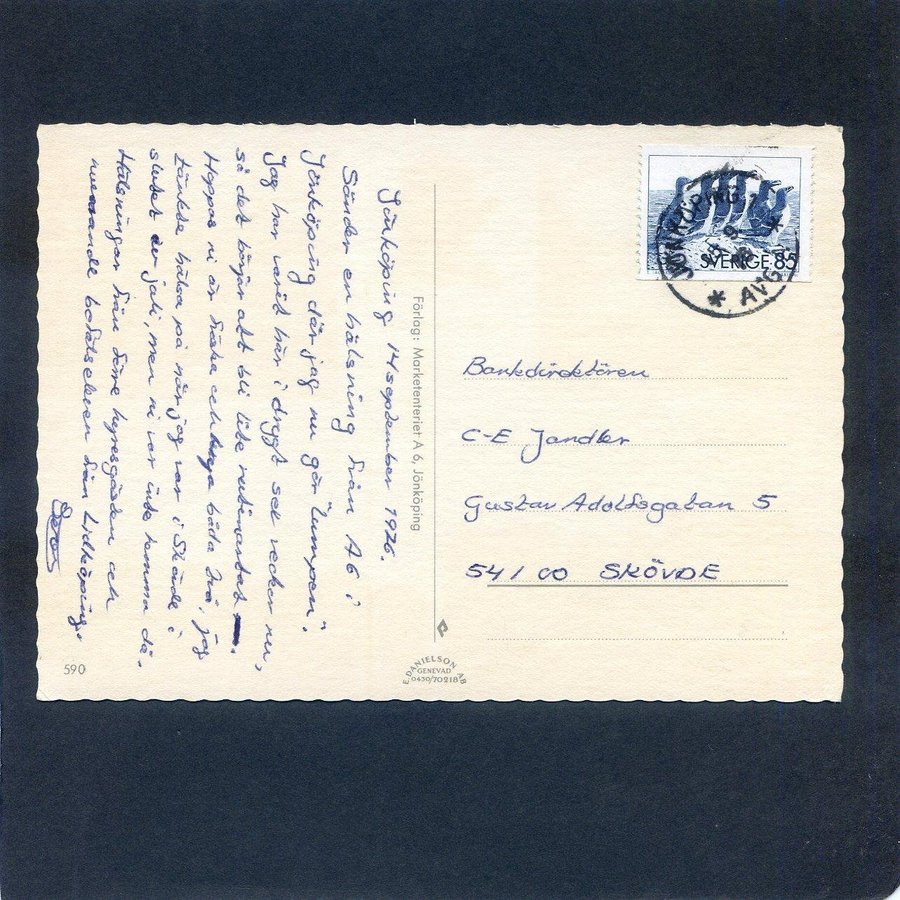 Jönköping 14 september 1976.
Sänder en hälsning från A6 i
Jönköping där jag nu gör "lumpen".
Jag har varit här i drygt sex veckor nu,
så det börjar att bli lite rutinartat.
Hoppas ni är friska och båda två, jag
tänkte hälsa på när jag var i Skövde i
slutet av juli, men ni var inte hemma då.
Hälsningar från förre hyresgästen och
numera
Förlag: Marketenteriet A 6, Jönköping
590
E. DANIELSON AB
GENEVAD
0430/70218
JÖNKÖPING 1
AVG
SVERIGE 85
Bankdirektören
C-E Jandler
Gustav Adolfsgatan 5
541 00 SKÖVDE